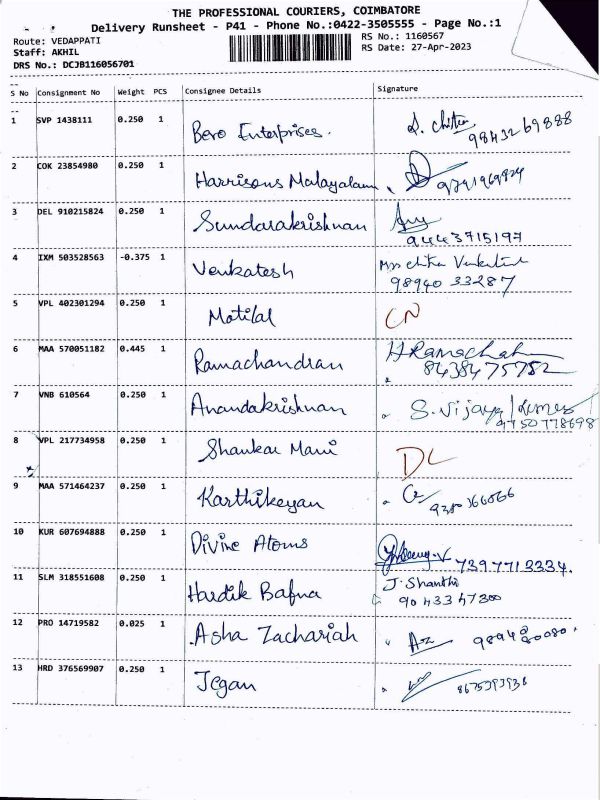 THE PROFESSIONAL COURIERS, COIMBATORE
Delivery Runsheet - P41 - Phone No.:0422-3505555 - Page No.:1
Route: VEDAPPATI
RS No.: 1160567
Staff: AKHIL
RS Date: 27-Apr-2023
DRS No.: DCJB116056701
S No Consignment No Weight PCS Consignee Details Signature
1 SVP 1438111 0.250 1 Bero Enterprises. S. Chitra
98432 69888
2 COK 23854980 0.250 1 Harrisons Malayalam
3 DEL 910215824 0.250 1 Sundarakrishnan
9443715197
4 IXM 503528563 -0.375 1 Venkatesh
98940 33287
5 VPL 402301294 0.250 1 Motilal CN
6 MAA 570051182 0.445 1 Ramachandran H Ramachandran
8438475752
7 VNB 610564 0.250 1 Anandakrishnan S. Vijaya
9750778698
8 VPL 217734958 0.250 1 Shankar Mani DL
9 MAA 571464237 0.250 1 Karthikeyan
10 KUR 607694888 0.250 1 Divine Atoms
7397713334.
11 SLM 318551608 0.250 1 Hardik Bafna J. Shanthi
90433 47300
12 PRO 14719582 0.025 1 Asha Zachariah
13 HRD 376569907 0.250 1 Jegan 8675393938